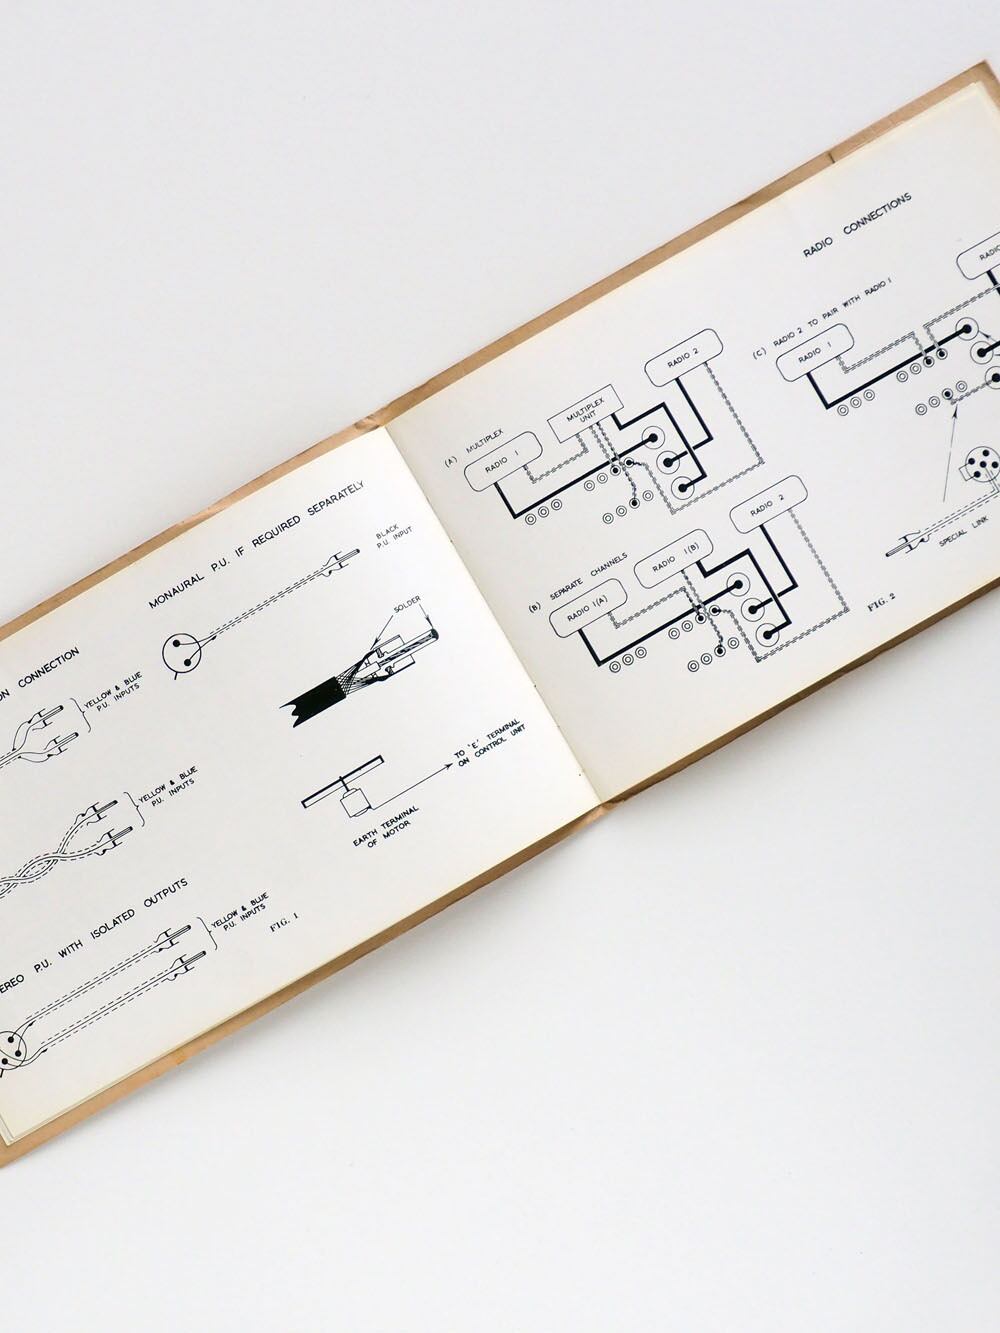 ON CONNECTION
YELLOW & BLUE
P.U. INPUTS
YELLOW & BLUE
P.U. INPUTS
EREO P.U. WITH ISOLATED OUTPUTS
YELLOW & BLUE
P.U. INPUTS
FIG. 1
MONAURAL P.U. IF REQUIRED SEPARATELY
BLACK
P.U. INPUT
SOLDER
TO 'E' TERMINAL
ON CONTROL UNIT
EARTH TERMINAL
OF MOTOR
RADIO CONNECTIONS
(A) MULTIPLEX
RADIO 1
MULTIPLEX
UNIT
RADIO 2
(B) SEPARATE CHANNELS
RADIO 1(A)
RADIO 1(B)
RADIO 2
(C) RADIO 2 TO PAIR WITH RADIO 1
RADIO 1
RADIO
SPECIAL LINK
FIG. 2